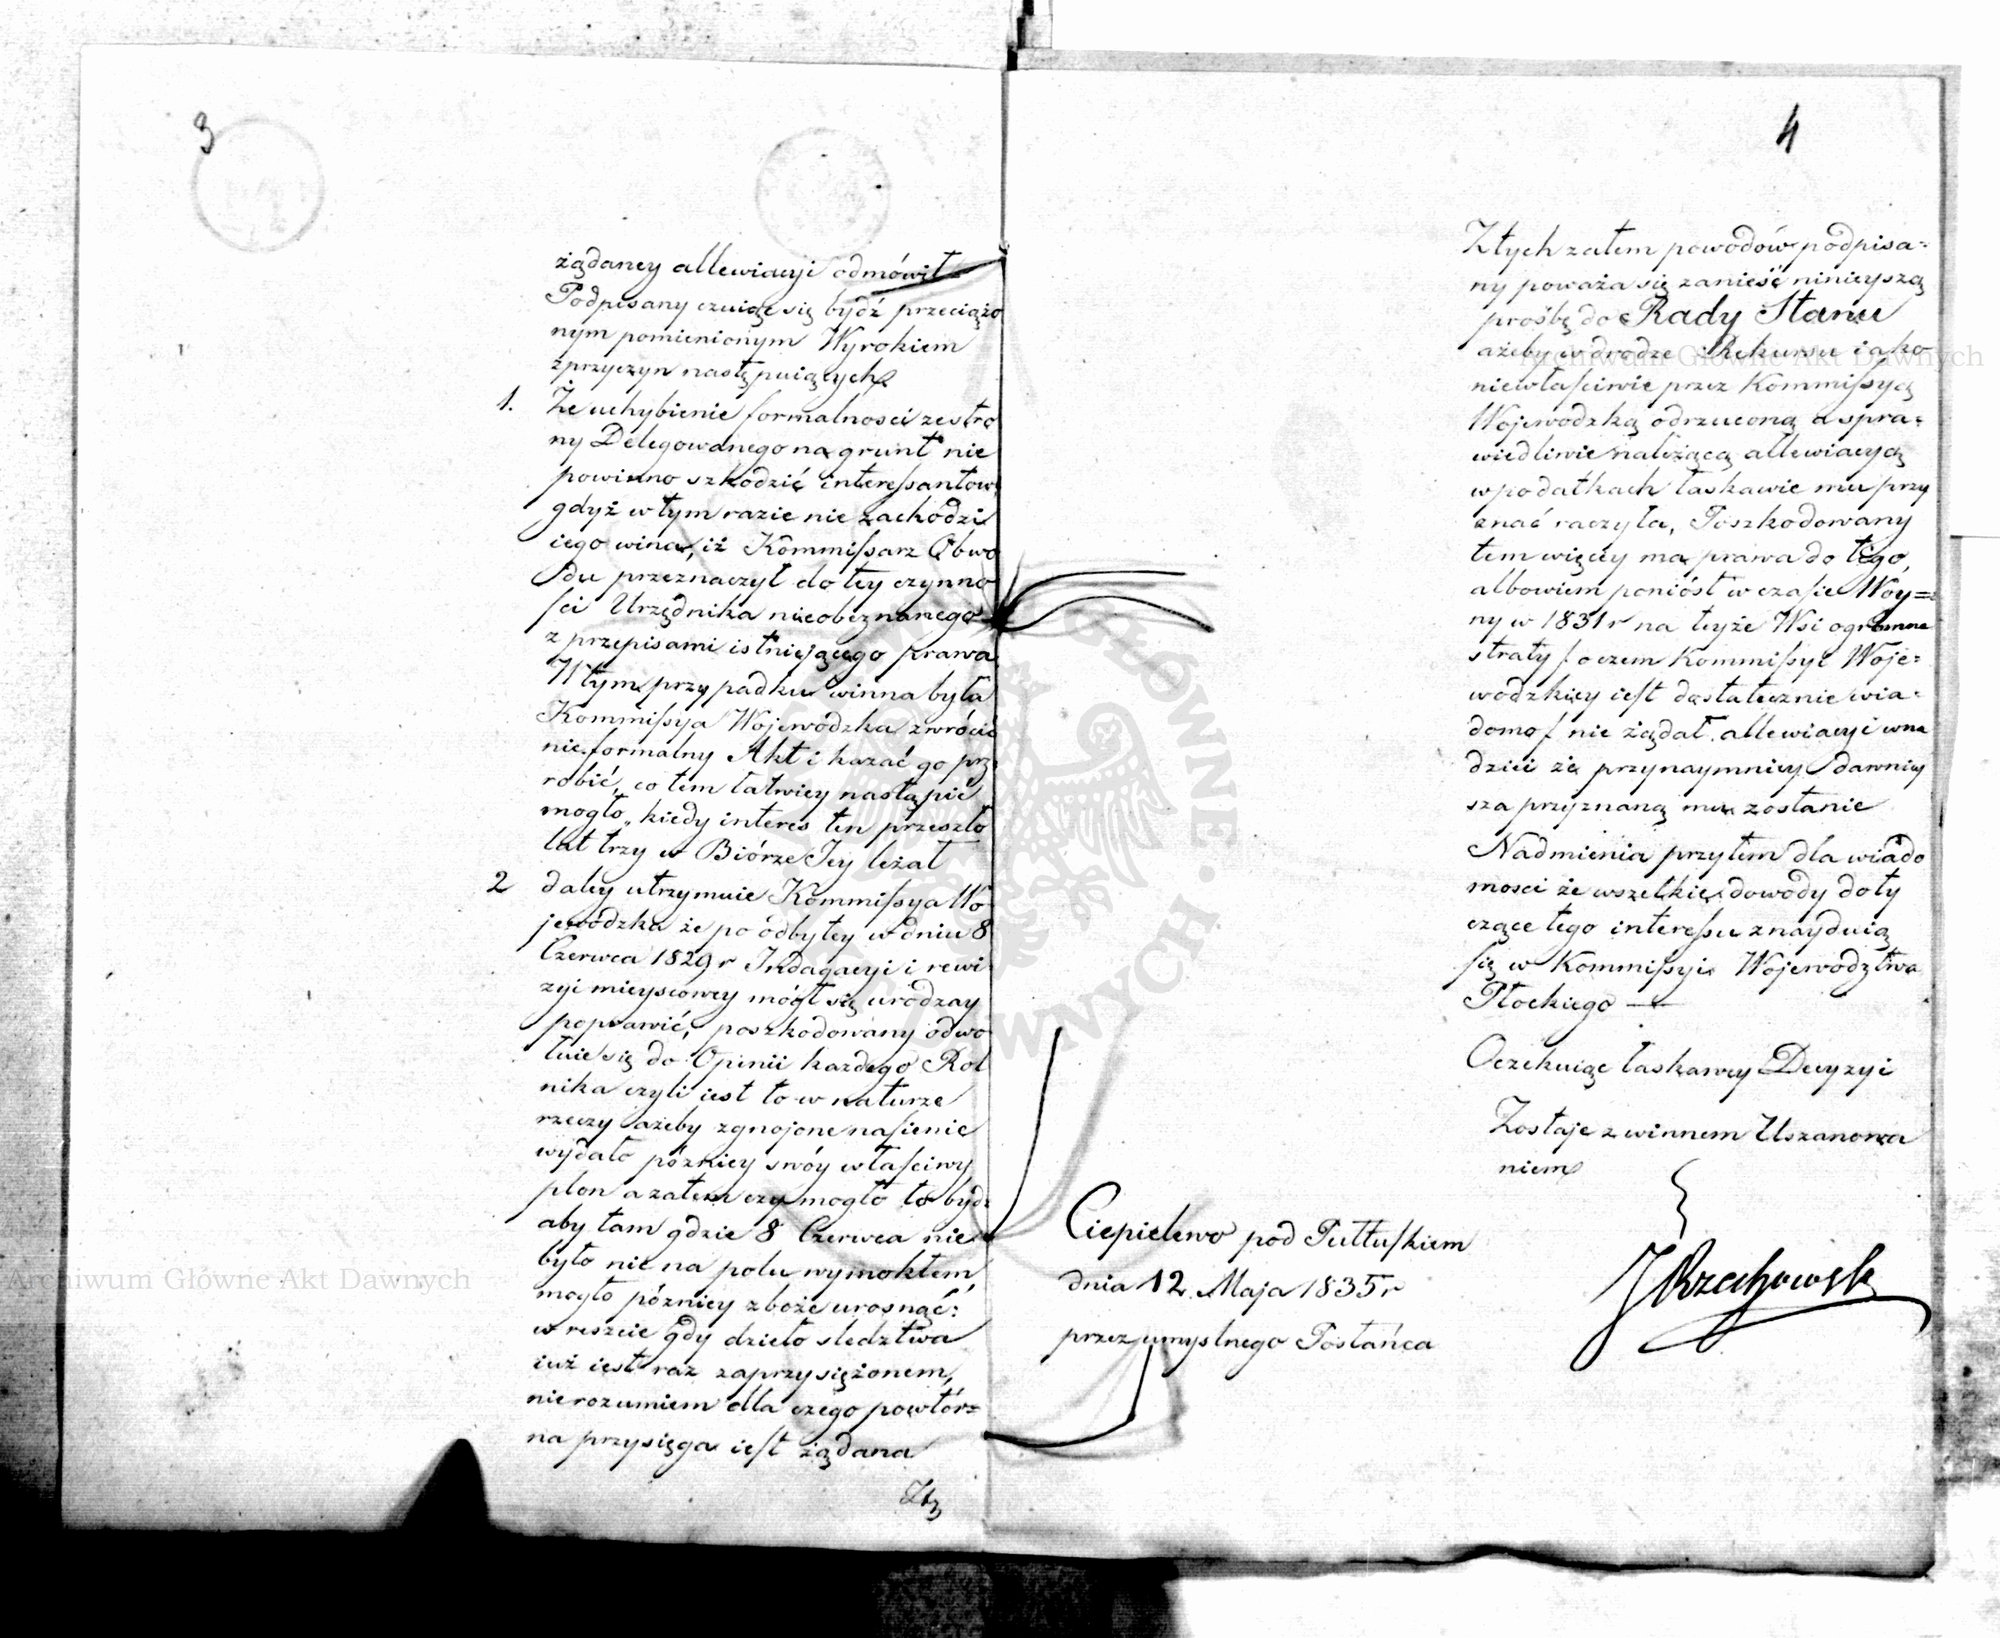 3
żądaney allewiacyi odmówił
Podpisany czuiąc się bydź przeciążo
nym pomienionym Wyrokiem
z przyczyn następuiących
1. Że uchybienie formalnosci ze stro
ny Delegowanego na grunt nie
powinno szkodzić interessantowi
gdyż w tym razie nie zachodzi
iego wina, iż Kommissarz Obwo
du przeznaczył do tey czynno
ści Urzędnika nieobeznanego
z przepisami istniejącego prawa
W tym przypadku winna była
Kommissya Wojewódzka zwrócić
nieformalny Akt i kazać go prze
robić, co tem łatwiey nastąpić
mogło, kiedy interes ten przeszło
lat trzy w Biórze Jey leżał
2 daley utrzymuie Kommissya Wo
jewódzka że po odbytey w dniu 8
Czerwca 1829 r Indagacyi i rewi
zyi mieyscowey mógł się urodzay
poprawić, poszkodowany odwo
łuie się do Opinii każdego Rol
nika czyli iest to w naturze
rzeczy ażeby zgnojone nasienie
wydało pózniey swóy właściwy
plon a zatem czy mogło to bydź
aby tam gdzie 8 Czerwca nie
było nic na polu wymokłem
mogło pózniey zboże urosnąć:
w reszcie gdy dzieło sledztwa
iuż iest raz zaprzysiężonem,
nierozumiem dla czego powtór=
na przysięga iest żądana
Ztę
4
Z tych zatem powodów podpisa=
ny poważa się zanieść ninieyszą
prośbę do Rady Stanu
ażeby w drodze Rekursu iako
niewłaściwie przez Kommissyą
Wojewodzką odrzuconą a spra=
wiedliwie należącą allewiacyą
w podatkach łaskawie mu przy
znać raczyła, Poszkodowany
tem więcey ma prawa do tego,
albowiem poniósł w czasie Woy=
ny w 1831 r na teyże Wsi ogromne
straty / o czem Kommissyi Woje=
wodzkiey iest dostatecznie wia=
domo / nie żądał allewiacyi w na
dziei że przynaymniey dawniey
sza przyznaną mu zostanie
Nadmienia przytem dla wiado
mosci że wszelkie dowody doty
czące tego interessu znayduią
się w Kommissyi Wojewodztwa
Płockiego —
Oczekuiąc łaskawey Decyzyi
Zostaje z winnem Uszanowa
niem
Ciepielewo pod Pułtuskiem
dnia 12 Maja 1835 r
przez umyslnego Posłańca
J Rzechowsk
Archiwum Główne Akt Dawnych
Archiwum Główne Akt Dawnych